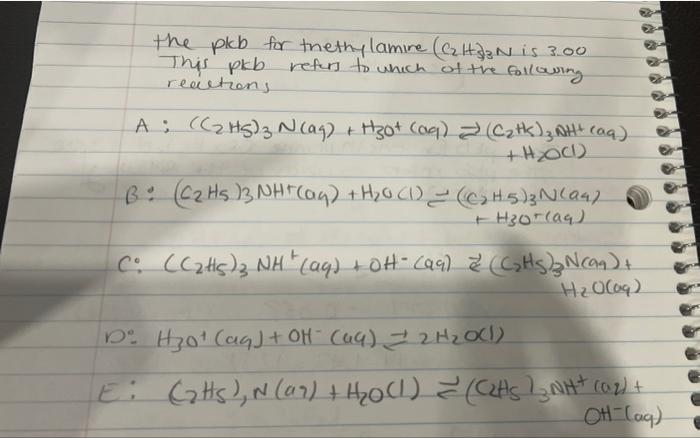 the pkb for triethylamine (C2H5)3N is 3.00
This pkb refers to which of the following
reactions
A: (C2H5)3N(aq) + H3O+ (aq) ⇌ (C2H5)3NH+ (aq)
+ H2O(l)
B: (C2H5)3NH+(aq) + H2O(l) ⇌ (C2H5)3N(aq)
+ H3O+(aq)
C: (C2H5)3 NH+ (aq) + OH- (aq) ⇌ (C2H5)3N(aq) +
H2O(aq)
D: H3O+ (aq) + OH- (aq) ⇌ 2H2O(l)
E: (C2H5)3N(aq) + H2O(l) ⇌ (C2H5)3NH+ (aq) +
OH-(aq)